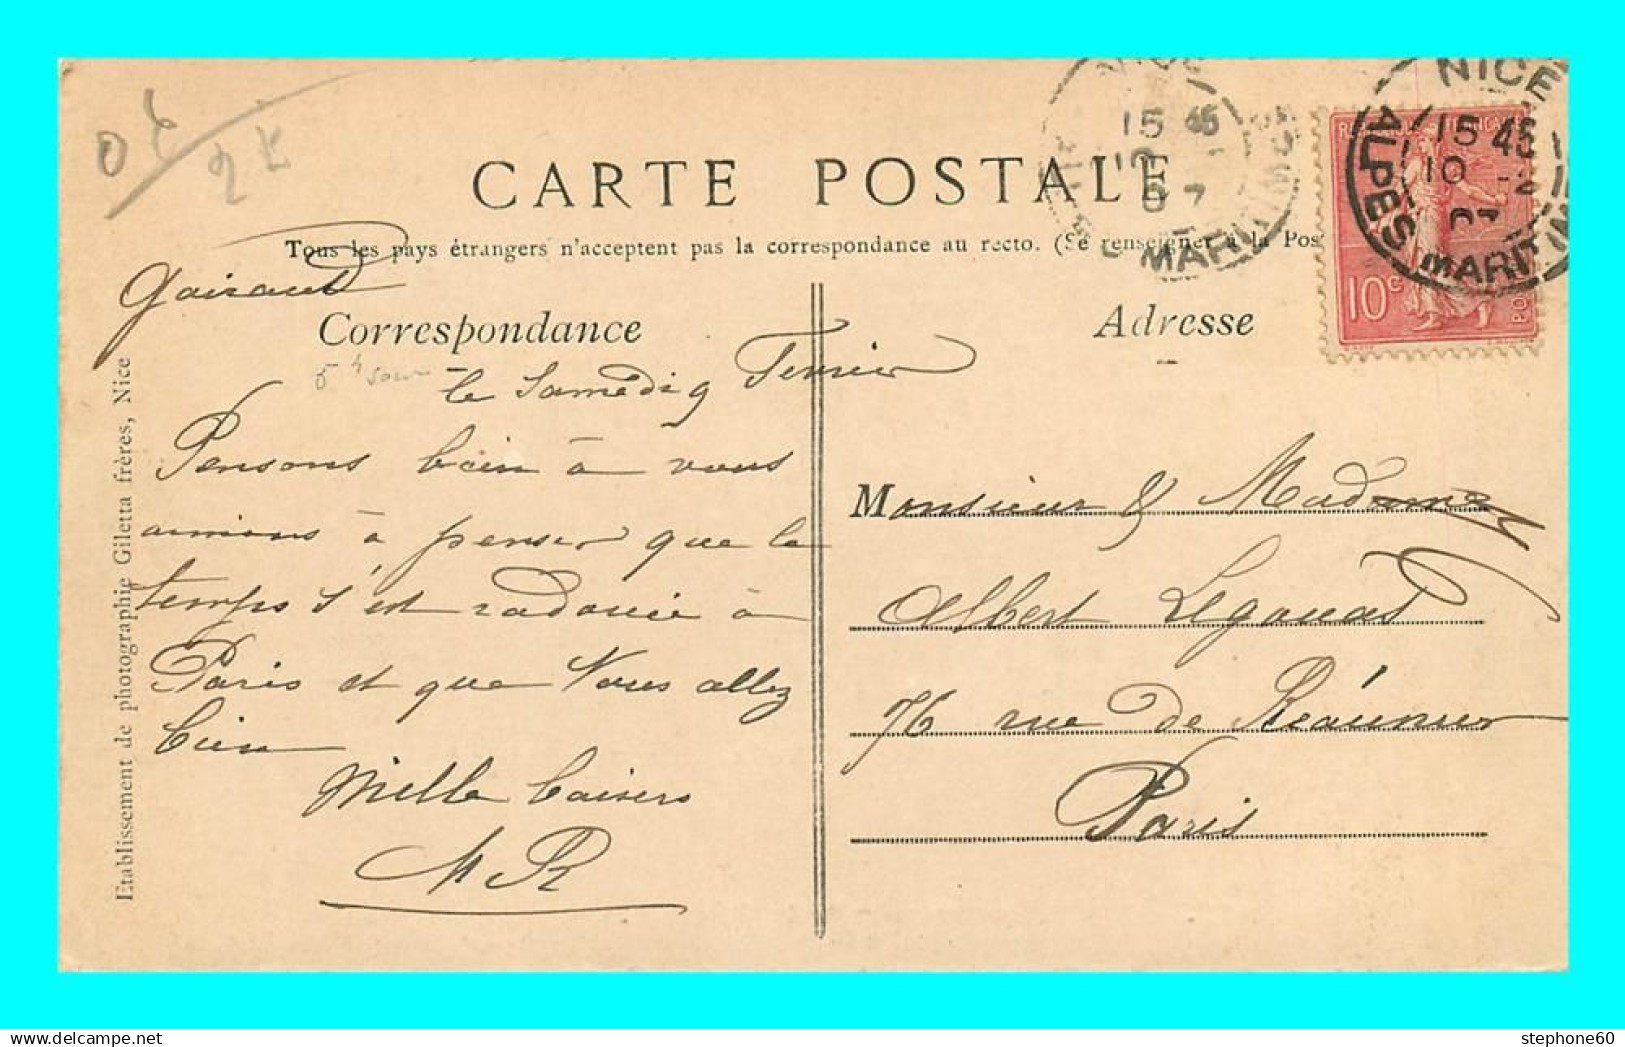 06
2E
CARTE POSTALE
Tous les pays étrangers n'acceptent pas la correspondance au recto. (Se renseigner à la Pos
Gairaud
Correspondance
5 h soir
le Samedi 9 Fevrier
Pensons bien à vous
aimons à penser que le
temps s'est radoucie à
Paris et que Vous allez
bien
Mille baisers
MR
Adresse
Monsieur & Madame
Albert Legouas
76 rue de Réaumur
Paris
NICE
15 45
10 -2
07
ALPES MARITIM
15 45
07
MARITIM
10c
Etablissement de photographie Giletta frères, Nice
stephone60
delcampe.net